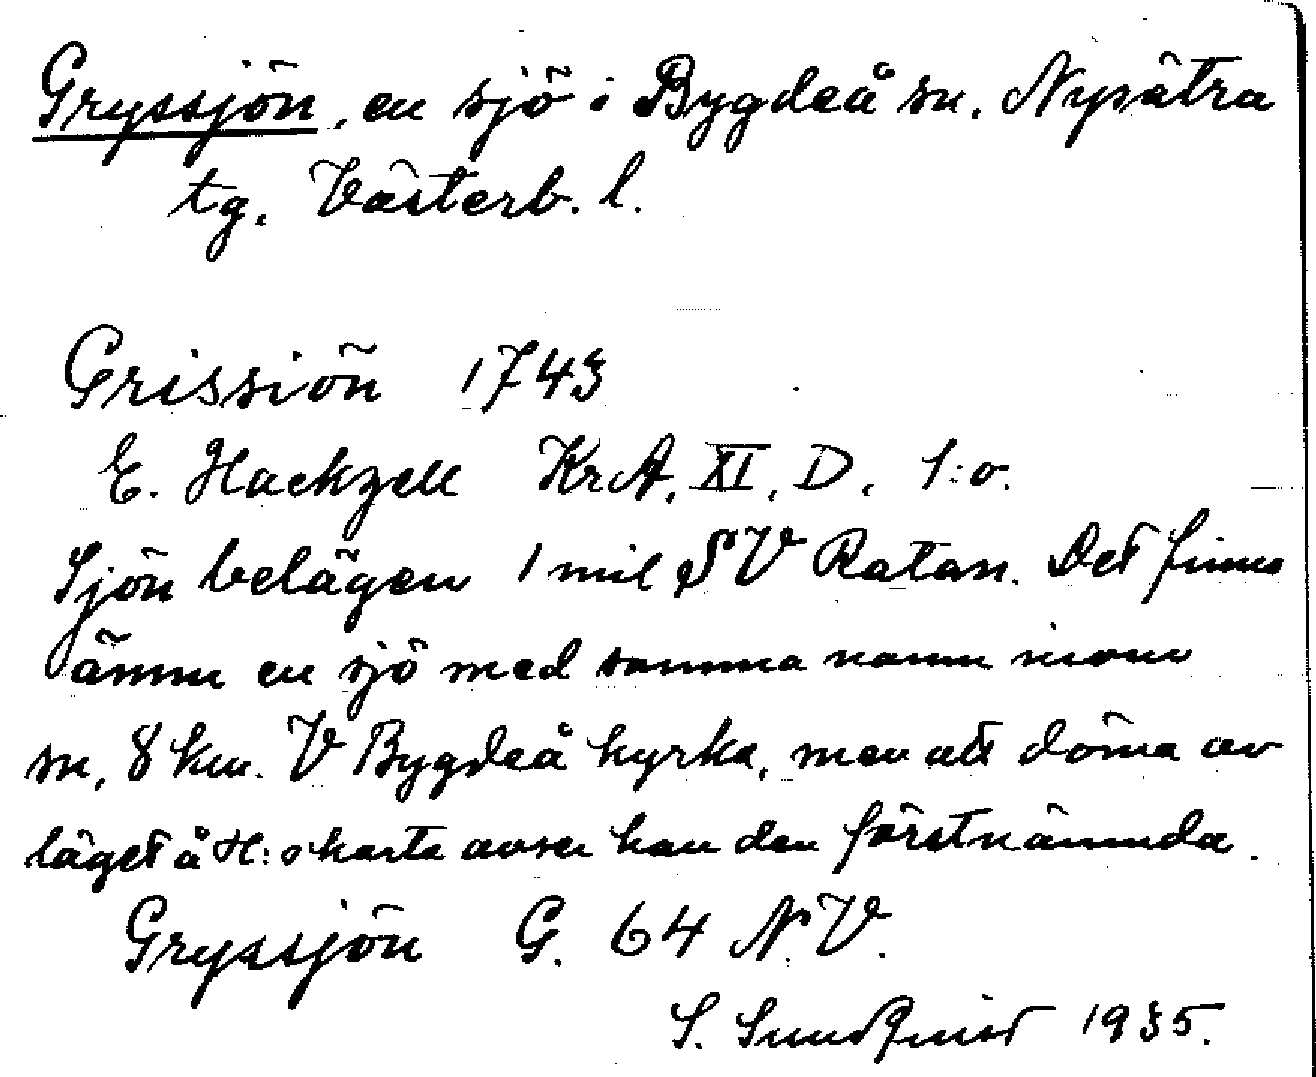 Gryssjön, en sjö i Bygdeå sn. Nysätra
tg. Västerb. l.
Grissiön 1743
E. Hackzell KrA. XI. D. 1:o.
Sjön belägen 1 mil SV Ratan. Det finns
ännu en sjö med samma namn inom
sn, 8 km. V Bygdeå kyrka, men att döma av
läget å H:s karta avser han den förstnämnda.
Gryssjön G. 64 N.V.
S. Sundquist 1935.